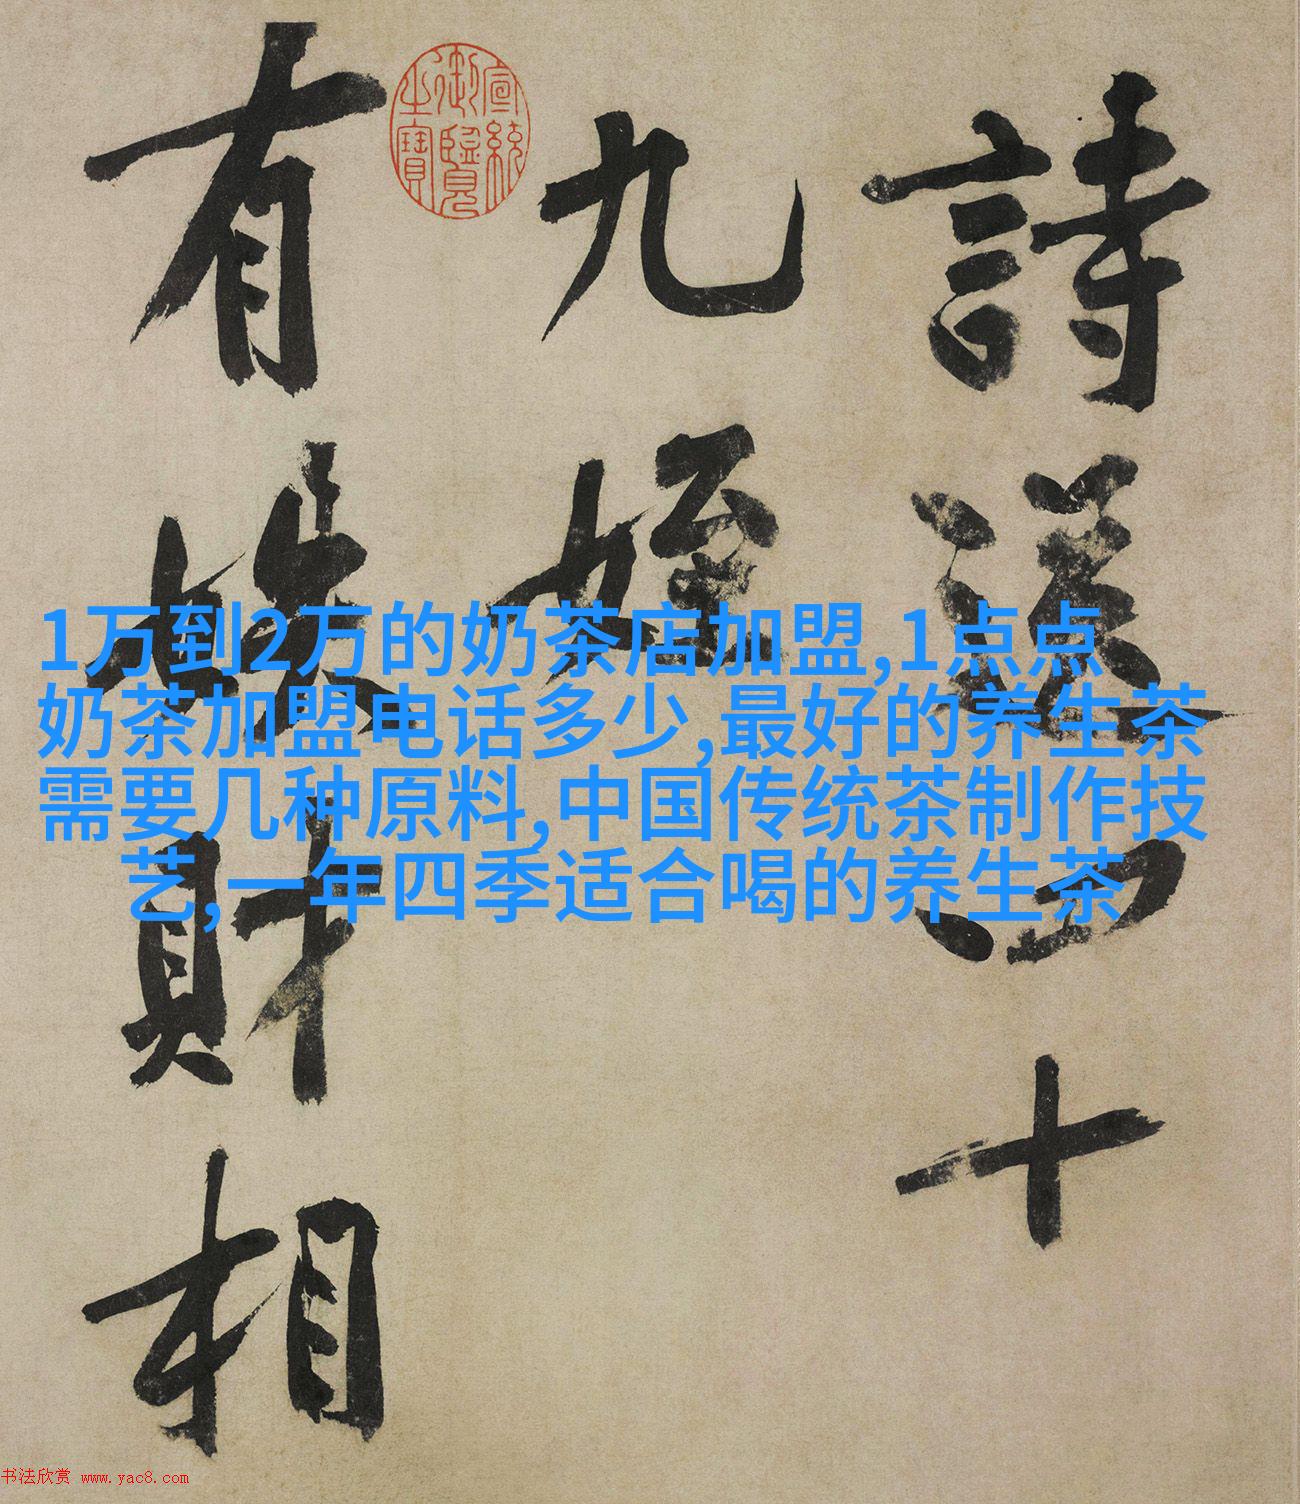 詩送四十
九姪
有
財相
宣統
御覽
之寶
1万到2万的奶茶店加盟,1点点
奶茶加盟电话多少,最好的养生茶
需要几种原料,中国传统茶制作技
艺,一年四季适合喝的养生茶
书法欣赏 www.yac8.com